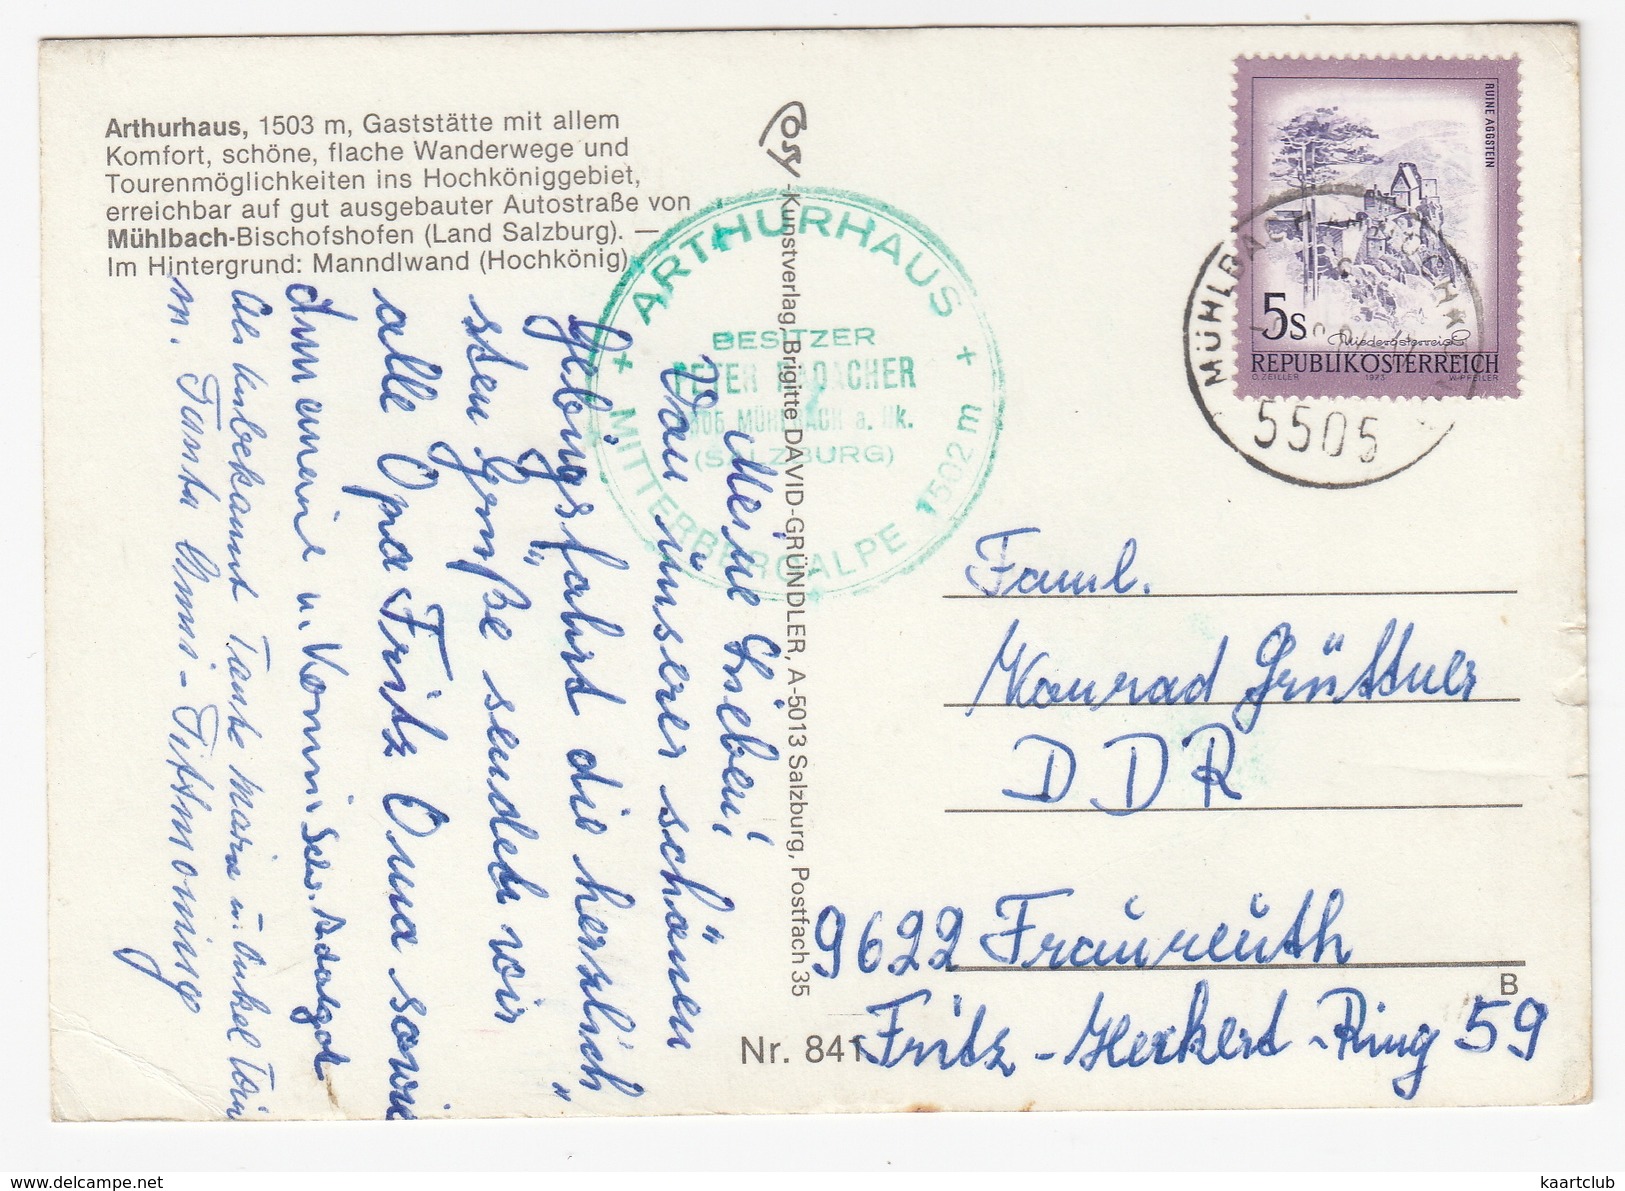 Arthurhaus, 1503 m, Gaststätte mit allem
Komfort, schöne, flache Wanderwege und
Tourenmöglichkeiten ins Hochköniggebiet,
erreichbar auf gut ausgebauter Autostraße von
Mühlbach-Bischofshofen (Land Salzburg). —
Im Hintergrund: Manndlwand (Hochkönig)
Cosy -Kunstverlag, Brigitte DAVID-GRÜNDLER, A-5013 Salzburg, Postfach 35
+ ARTHURHAUS +
BESITZER
PETER RADACHER
MÜHLBACH a. Hk.
(SALZBURG)
MITTERBERGALPE 1502 m
RUINE AGGSTEIN
5S
Niederösterreich
REPUBLIK ÖSTERREICH
O. ZEILLER 1973 W. PFEILER
MÜHLBACH AM HOCHKÖNIG
5505
Meine Lieben!
Von unserer schönen
Gebirgsfahrt die herzlich"
sten Grüße senden wir
alle Opa Fritz Oma sowie
u.
als unbekannt Tante Marie u. Onkel Toni
u. Tante Anni - Tittmoning
Faml.
Konrad Grüttner
DDR
9622 Fraureuth
Fritz-Heckert-Ring 59
B
Nr. 841
kaartclub